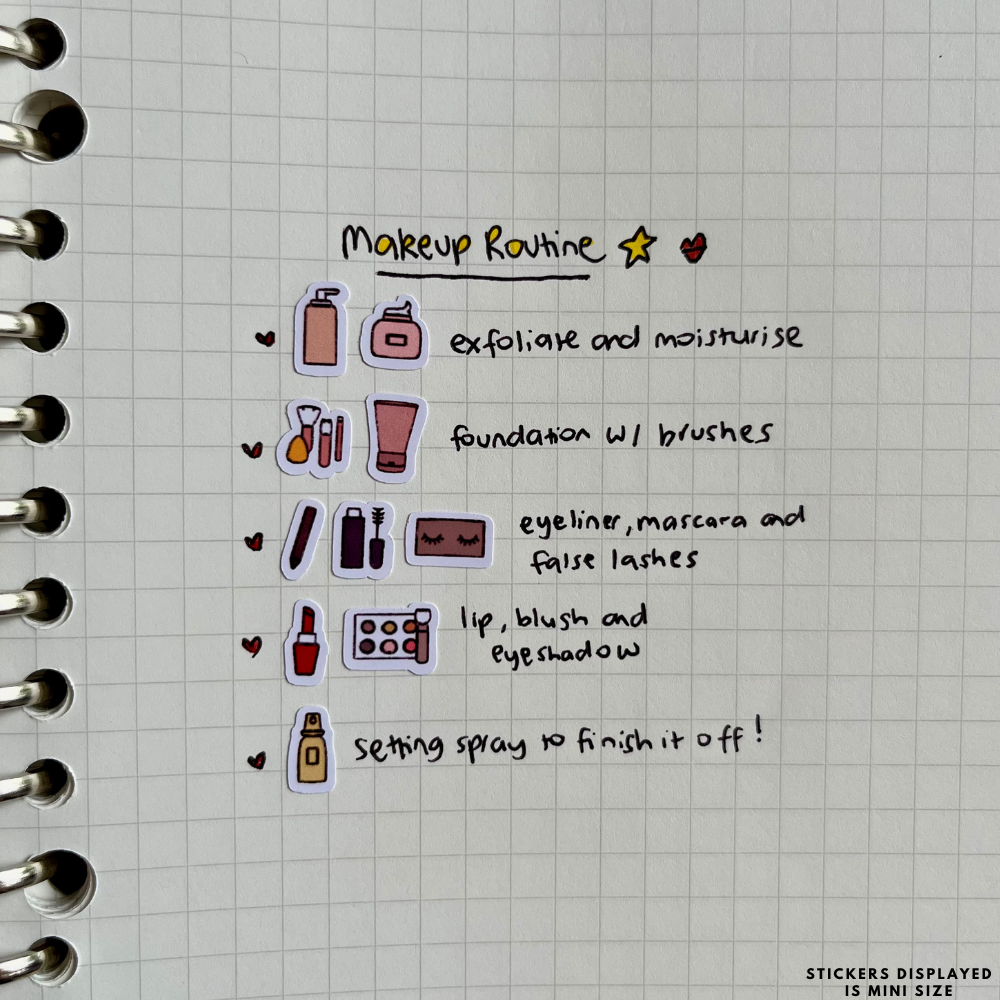 Makeup Routine
exfoliate and moisturise
foundation w/ brushes
eyeliner, mascara and
false lashes
lip, blush and
eyeshadow
setting spray to finish it off!
STICKERS DISPLAYED
IS MINI SIZE